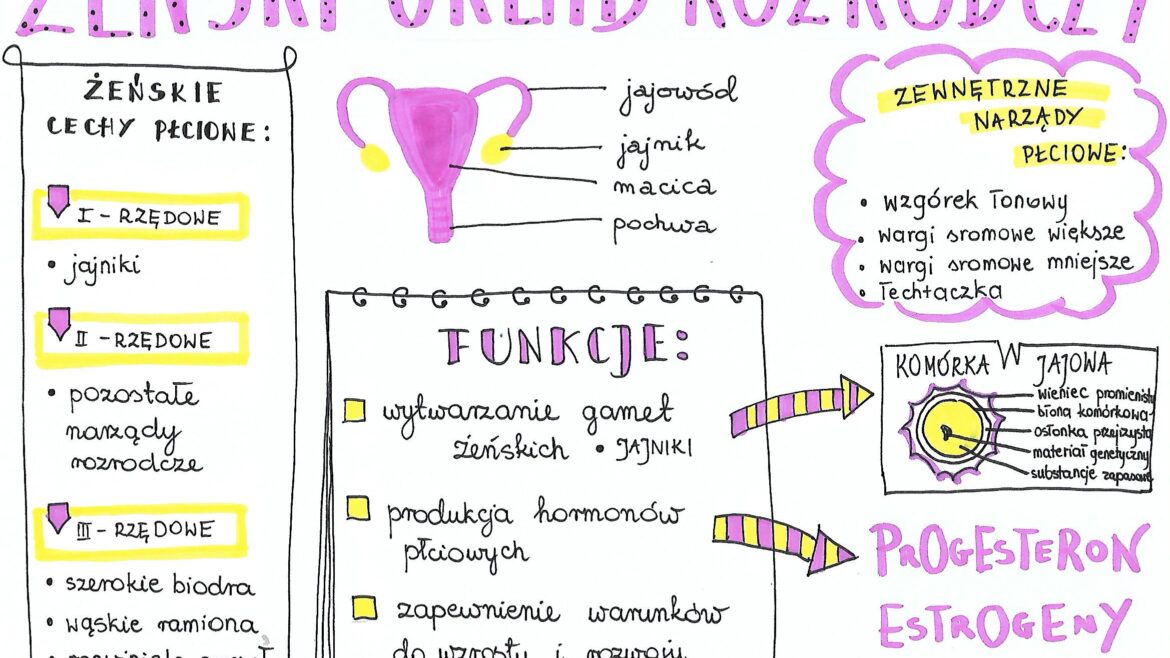 ŻEŃSKI UKŁAD ROZRODCZY
ŻEŃSKIE
CECHY PŁCIOWE:
I - RZĘDOWE
• jajniki
II - RZĘDOWE
• pozostałe
narządy
rozrodcze
III - RZĘDOWE
• szerokie biodra
• wąskie ramiona
jajowód
jajnik
macica
pochwa
FUNKCJE:
wytwarzanie gamet
żeńskich • JAJNIKI
produkcja hormonów
płciowych
zapewnienie warunków
do wzrostu i rozwoju
ZEWNĘTRZNE
NARZĄDY
PŁCIOWE:
• wzgórek łonowy
• wargi sromowe większe
• wargi sromowe mniejsze
• łechtaczka
KOMÓRKA JAJOWA
wieniec promienisty
błona komórkowa
osłonka przejrzysta
materiał genetyczny
substancje zapasowe
PROGESTERON
ESTROGENY